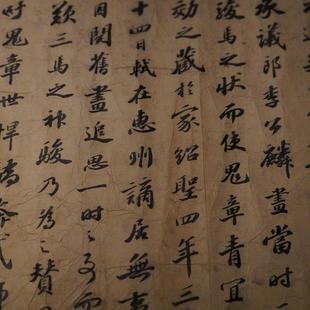 承議郎李公麟畫當時
駿馬之狀而使鬼章青宜
効之藏於家紹聖四年三
十四日軾在惠州謫居無事
因閱舊畫追思一時之事而
歎三馬之神駿乃為之贊
吁鬼章世悍驕奔貳師